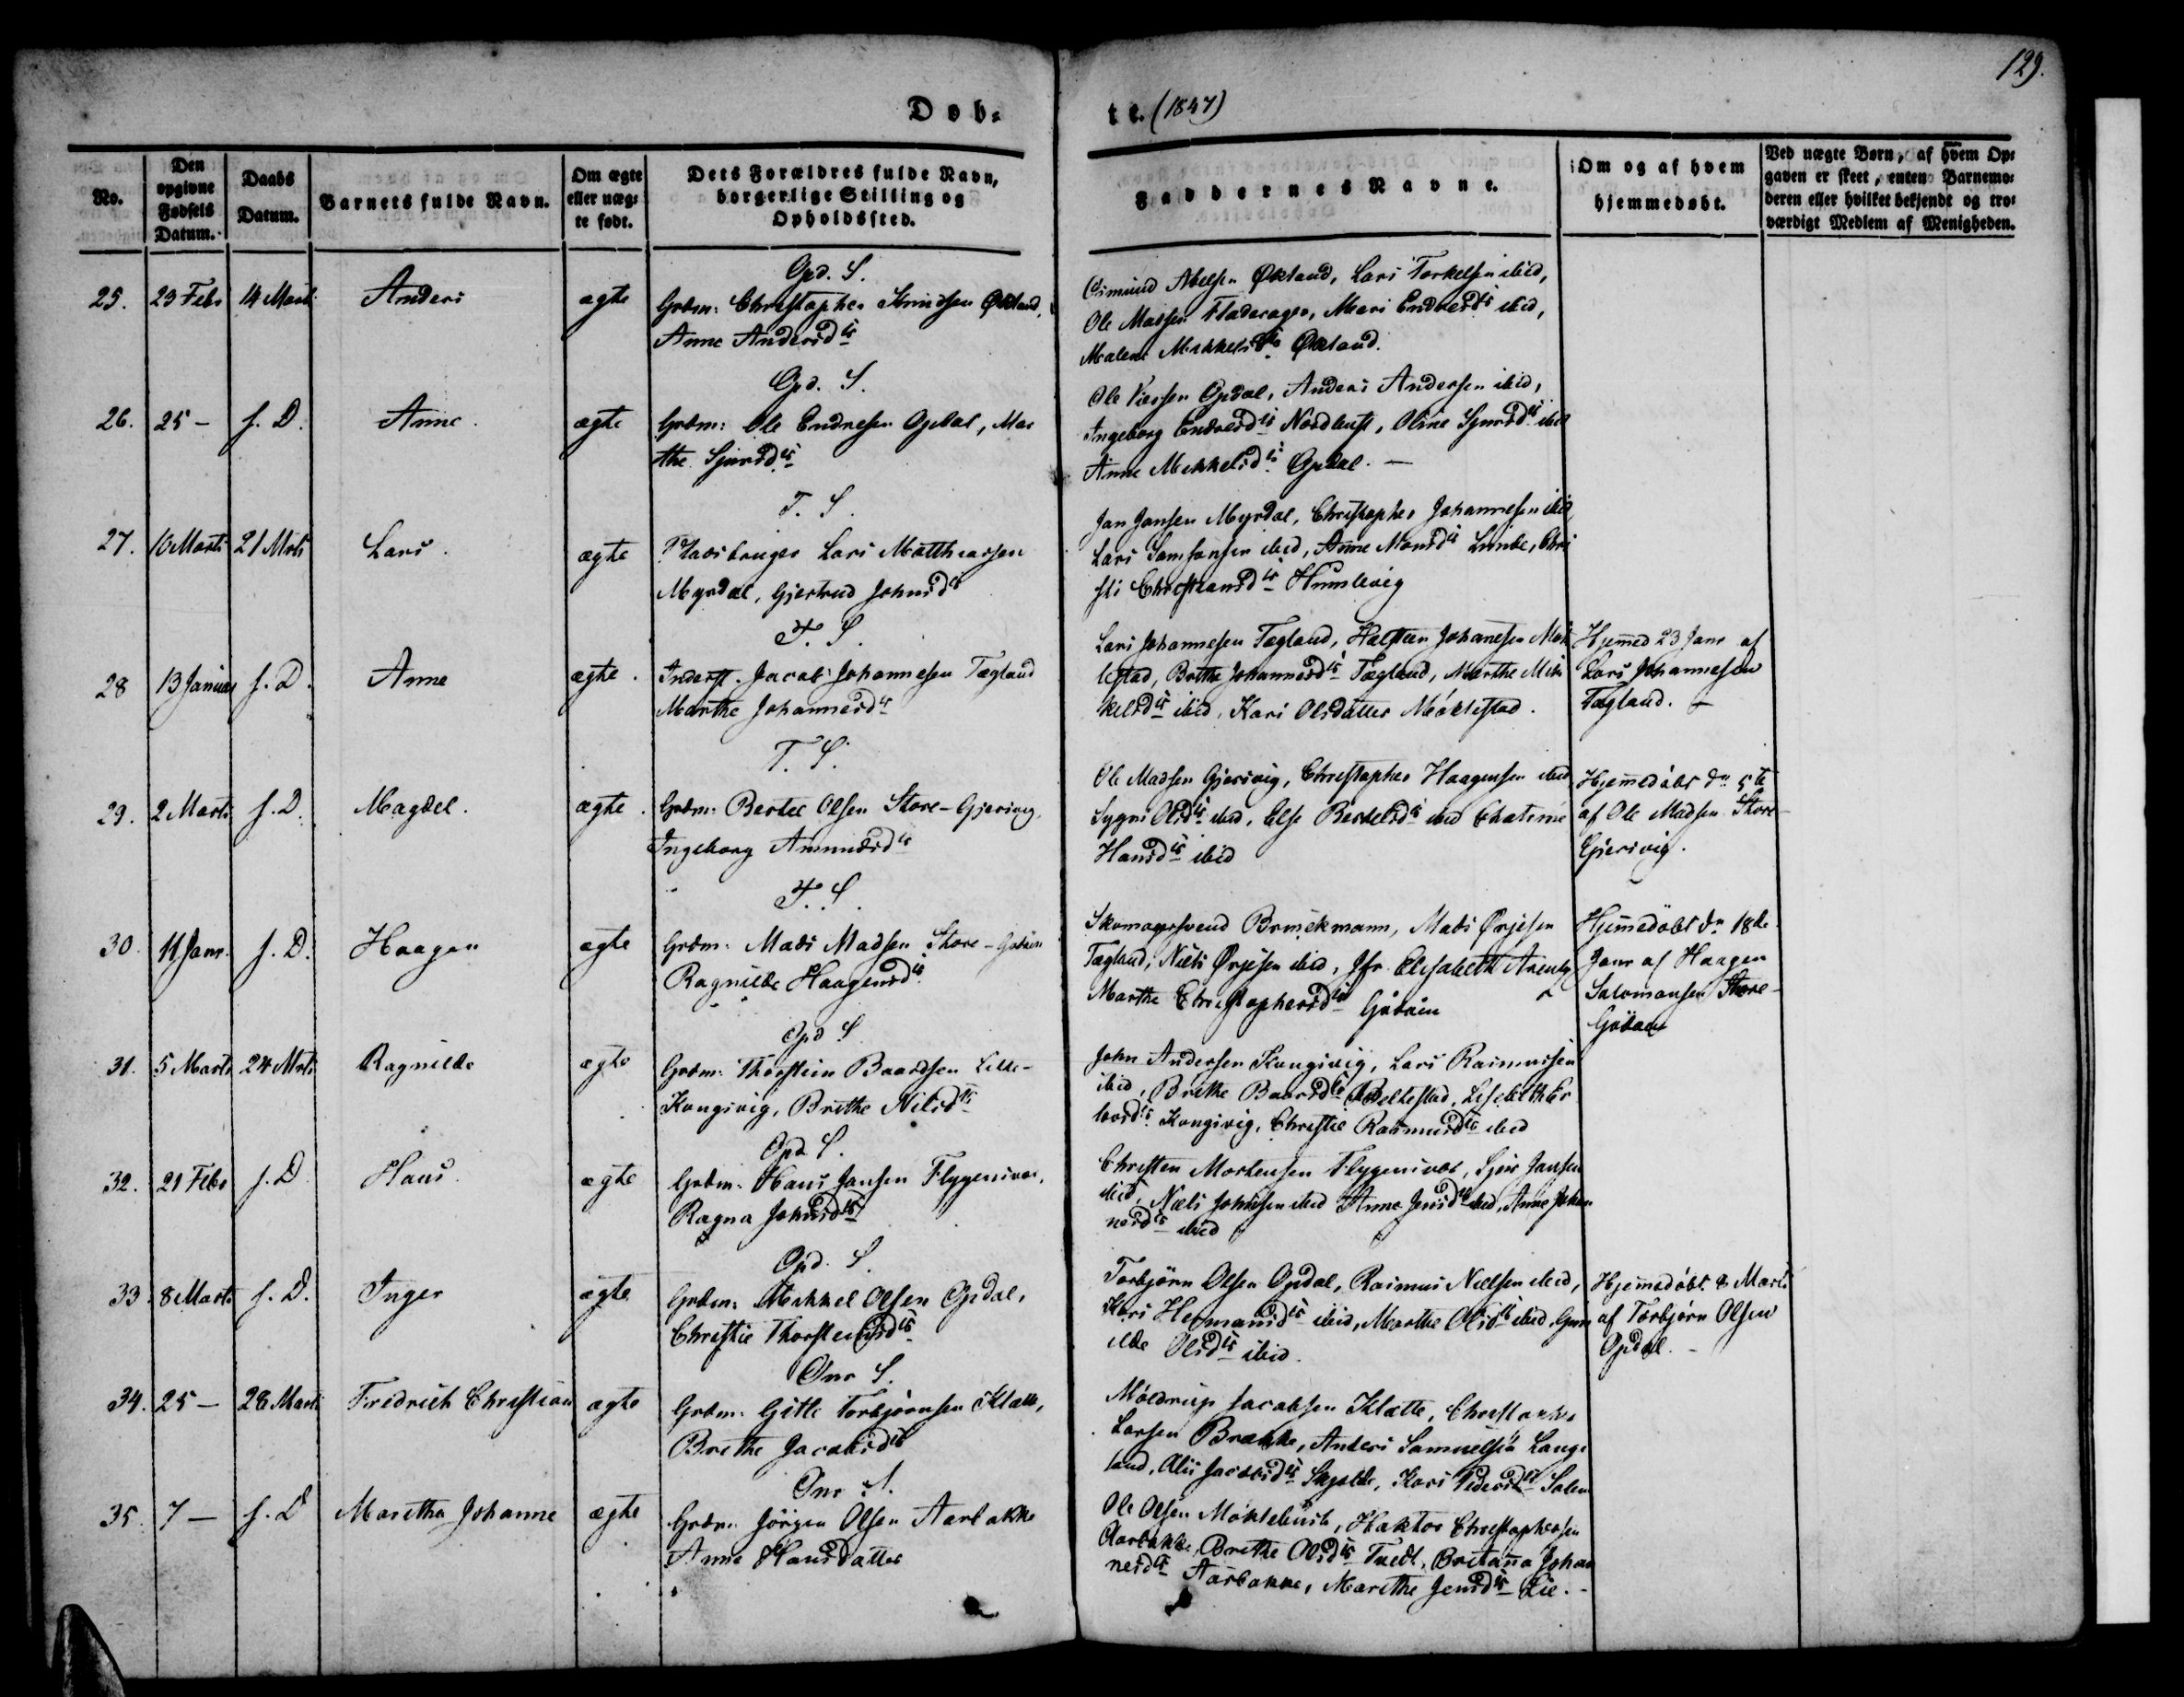 129.
Døb-
te. (1847)
No.
Den
opgivne
Fødsels
Datum.
Daabs
Datum.
Barnets fulde Navn.
Om ægte
eller uæg-
te født.
Dets Forældres fulde Navn,
borgerlige Stilling og
Opholdssted.
Faddernes Navne.
Om og af hvem
hjemmedøbt.
Ved uægte Børn, af hvem Op-
gaven er skeet, enten Barnemo-
deren eller hvilket bekjendt og tro-
værdigt Medlem af Menigheden.
Opd. S.
25. 23 Febr 14 Marti Anders ægte Grdm: Christopher Knudsen Økland,
Anne Andersdtr
Osmund Abelsen Økland, Lars Torkelsen ibid,
Ole Madsen Fladerager, Mari Endresdtr ibid,
Malene Mikkelsdtr Økland.
Opd. S.
26. 25 – s. D. Anne. ægte Grdm: Ole Endresen Opdal, Mar
the Sjursdtr
Ole Opdal, Anders Andersen ibid,
Ingeborg Endresdtr Nordhuse, Oline Sjursdtr ibid
Anne Mikkelsdtr Opdal. –
T. S.
27. 10 Marti 21 Mrti Lars. ægte Pladsbruger Lars Matthiassen
Myrdal, Gjertrud Johnsdtr
Jan Jansen Myrdal, Christopher Johannesen ibid
Lars Samsonsen ibid, Anne Monsdtr Lunde, Chri
sti Christiansdtr Humlevig
T. S.
28 13 Januar s. D. Anne ægte. Inderst. Jacob Johannesen Tegland
Marthe Johannesdtr
Lars Johannesen Tegland, Halsteen Johanesen Møk
lestad, Brithe Johannesdtr Tegland, Marthe Mik
kelsdtr ibid, Kari Olsdatter Møklestad.
Hjemmed 23 Janr af
Lars Johannesen
Tegland. –
T. S.
29. 2 Marti s. D. Magdel. ægte. Grdm: Bertel Olsen Store-Gjersvig,
Ingeborg Amundsdtr
Ole Madsen Gjersvig, Christopher Haagensen ibid
Sygni Olsdtr ibid, Else Bertelsdtr ibid
Hansdtr ibid
Hjemmedøbt dn 5te
af Ole Madsen Store-
Gjersvig.
T. S.
30. 11 Janr. s. D. Haagen ægte Grdm: Mads Madsen Store-
Ragnilde Haagensdtr
Skomagersvend Brinckmann, Mads Ørjesen
Tegland, Niels Ørjesen ibid, Jfr. Elisabeth
Marthe Christophersdtr
Hjemmedøbt dn 18de
Janr af Haagen
Salomonsen Store-
Opd S
31. 5 Marti 24 Mrti Ragnilde ægte Grdm: Thorstein Baardsen Lille-
Kongsvig, Brithe Nilsdtr
John Andersen Kongsvig, Lars Rasmussen
ibid, Brithe Baardsdtr Meltestad,
Kongsvig, Christie Rasmusdtr ibid
Opd S.
32. 21 Febr s. D Hans. ægte Grdm: Hans Jansen Flygensvær,
Ragna Johnsdtr
Christen Mortensen Flygensvær, Sjur Jansen
ibid, Niels Johnsen ibid Anne Jensdtr ibid, Anne Johan
nesdtr ibid
Opd. S.
33. 8 Marti s. D. Inger ægte Grdm: Mikkel Olsen Opdal,
Christie Thorsteinsdtr
Torbjørn Olsen Opdal, Rasmus Nielsen ibid,
Kari Hermansdtr ibid, Marthe Olsdtr ibid, Gun
ilde Olsdtr ibid.
Hjemmedøbt 8 Marti
af Torbjørn Olsen
Opdal. –
Onr S.
34. 25 – 28 Marti Fredrich Christian ægte Grdm: Gitle Torbjørnsen Klatte,
Brithe Jacobsdtr
Møldrup Jacobsen Klatte, Christopher
Larsen Brække, Anders Samuelsen Lange
land, Alis Jacobsdtr Skjolde, Kari Pedersdtr
Onr S.
35. 7 – s. D Maretha Johanne ægte Grdm. Jørgen Olsen Aarbakke
Anne Hansdatter
Ole Olsen Møklebust, Haktor Christophersen
Aarbakke, Brithe Olsdtr Tvedt, Britana Johan
nesdtr Aarbakke, Marithe Jensdtr Lie. –